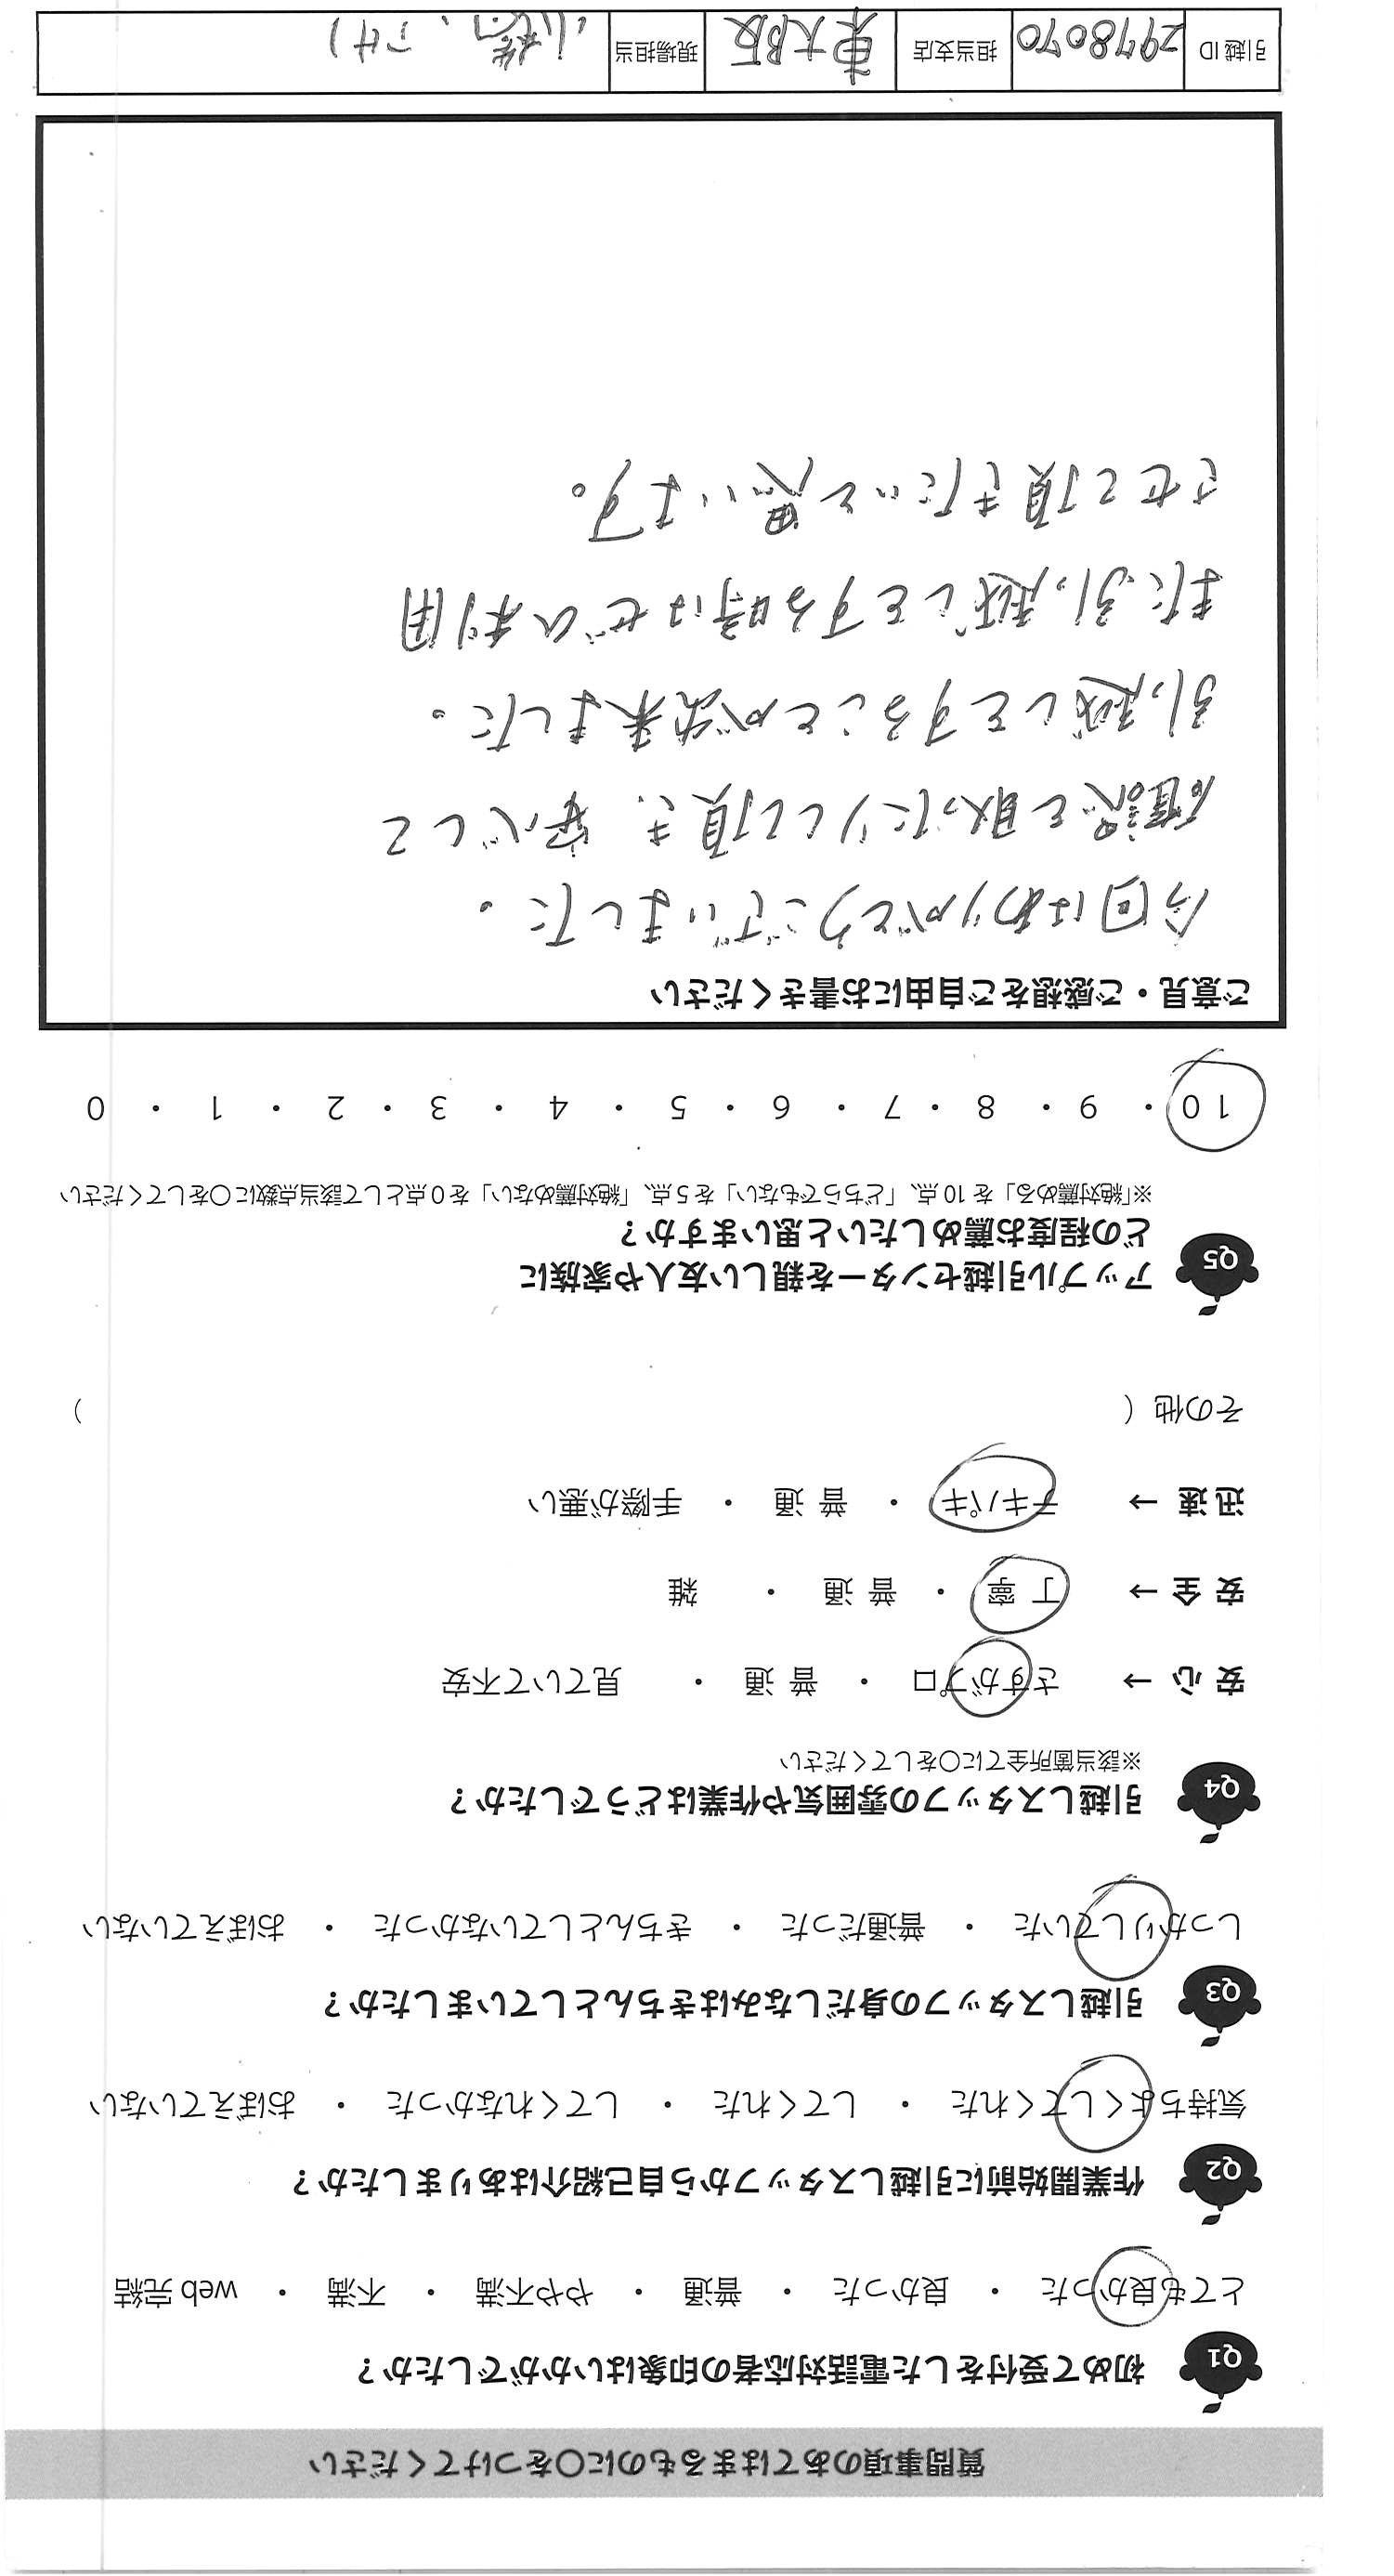 質問事項のあてはまるものに○をつけてください
Q1 初めて受付をした電話対応者の印象はいかがでしたか？
とても良かった ・ 良かった ・ 普通 ・ やや不満 ・ 不満 ・ web 完結
Q2 作業開始前に引越しスタッフから自己紹介はありましたか？
気持ちよくしてくれた ・ してくれた ・ してくれなかった ・ おぼえていない
Q3 引越しスタッフの身だしなみはきちんとしていましたか？
しっかりしていた ・ 普通だった ・ きちんとしていなかった ・ おぼえていない
Q4 引越しスタッフの雰囲気や作業はどうでしたか？
※該当箇所全てに○をしてください
安心 → さすがプロ ・ 普通 ・ 見ていて不安
安全 → 丁寧 ・ 普通 ・ 雑
迅速 → テキパキ ・ 普通 ・ 手際が悪い
その他（ ）
Q5 アップル引越センターを親しい友人や家族に
どの程度お薦めしたいと思いますか？
※「絶対薦める」を 10 点、「どちらでもない」を 5 点、「絶対薦めない」を 0 点として該当点数に○をしてください
10 ・ 9 ・ 8 ・ 7 ・ 6 ・ 5 ・ 4 ・ 3 ・ 2 ・ 1 ・ 0
ご意見・ご感想をご自由にお書きください
今回はありがとうございました。
確認を取ったりして頂き、安心して
引っ越しをすることが出来ました。
また引っ越しをする時はぜひ利用
させて頂きたいと思います。
引越 ID 2978070 担当支店 東大阪 現場担当